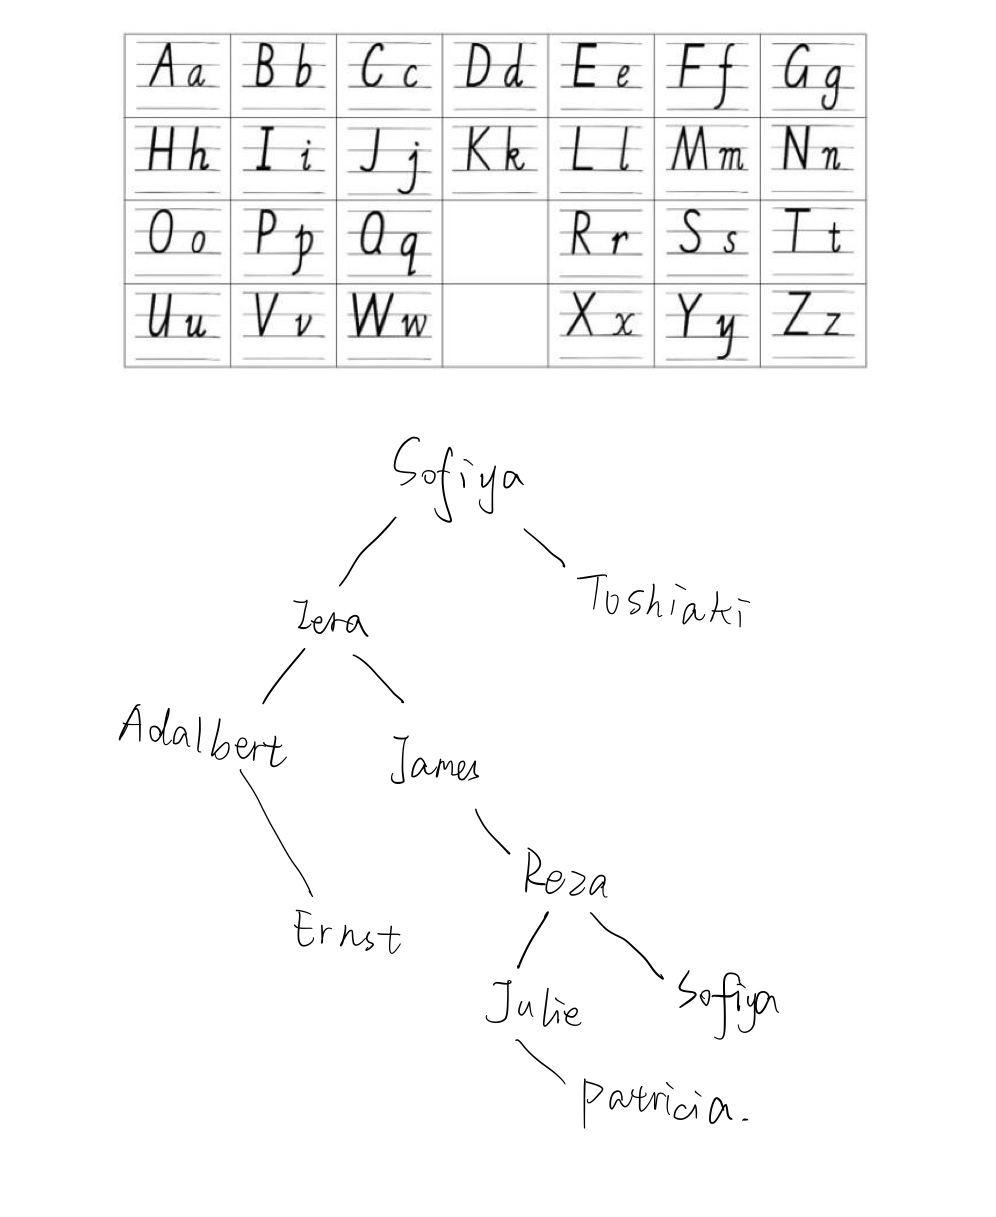 Aa Bb Cc Dd Ee Ff Gg
Hh Ii Jj Kk Ll Mm Nn
Oo Pp Qq Rr Ss Tt
Uu Vv Ww Xx Yy Zz
Sofiya
Toshiaki
Zera
Adalbert
James
Reza
Ernst
Julie
Sofiya
Patricia.